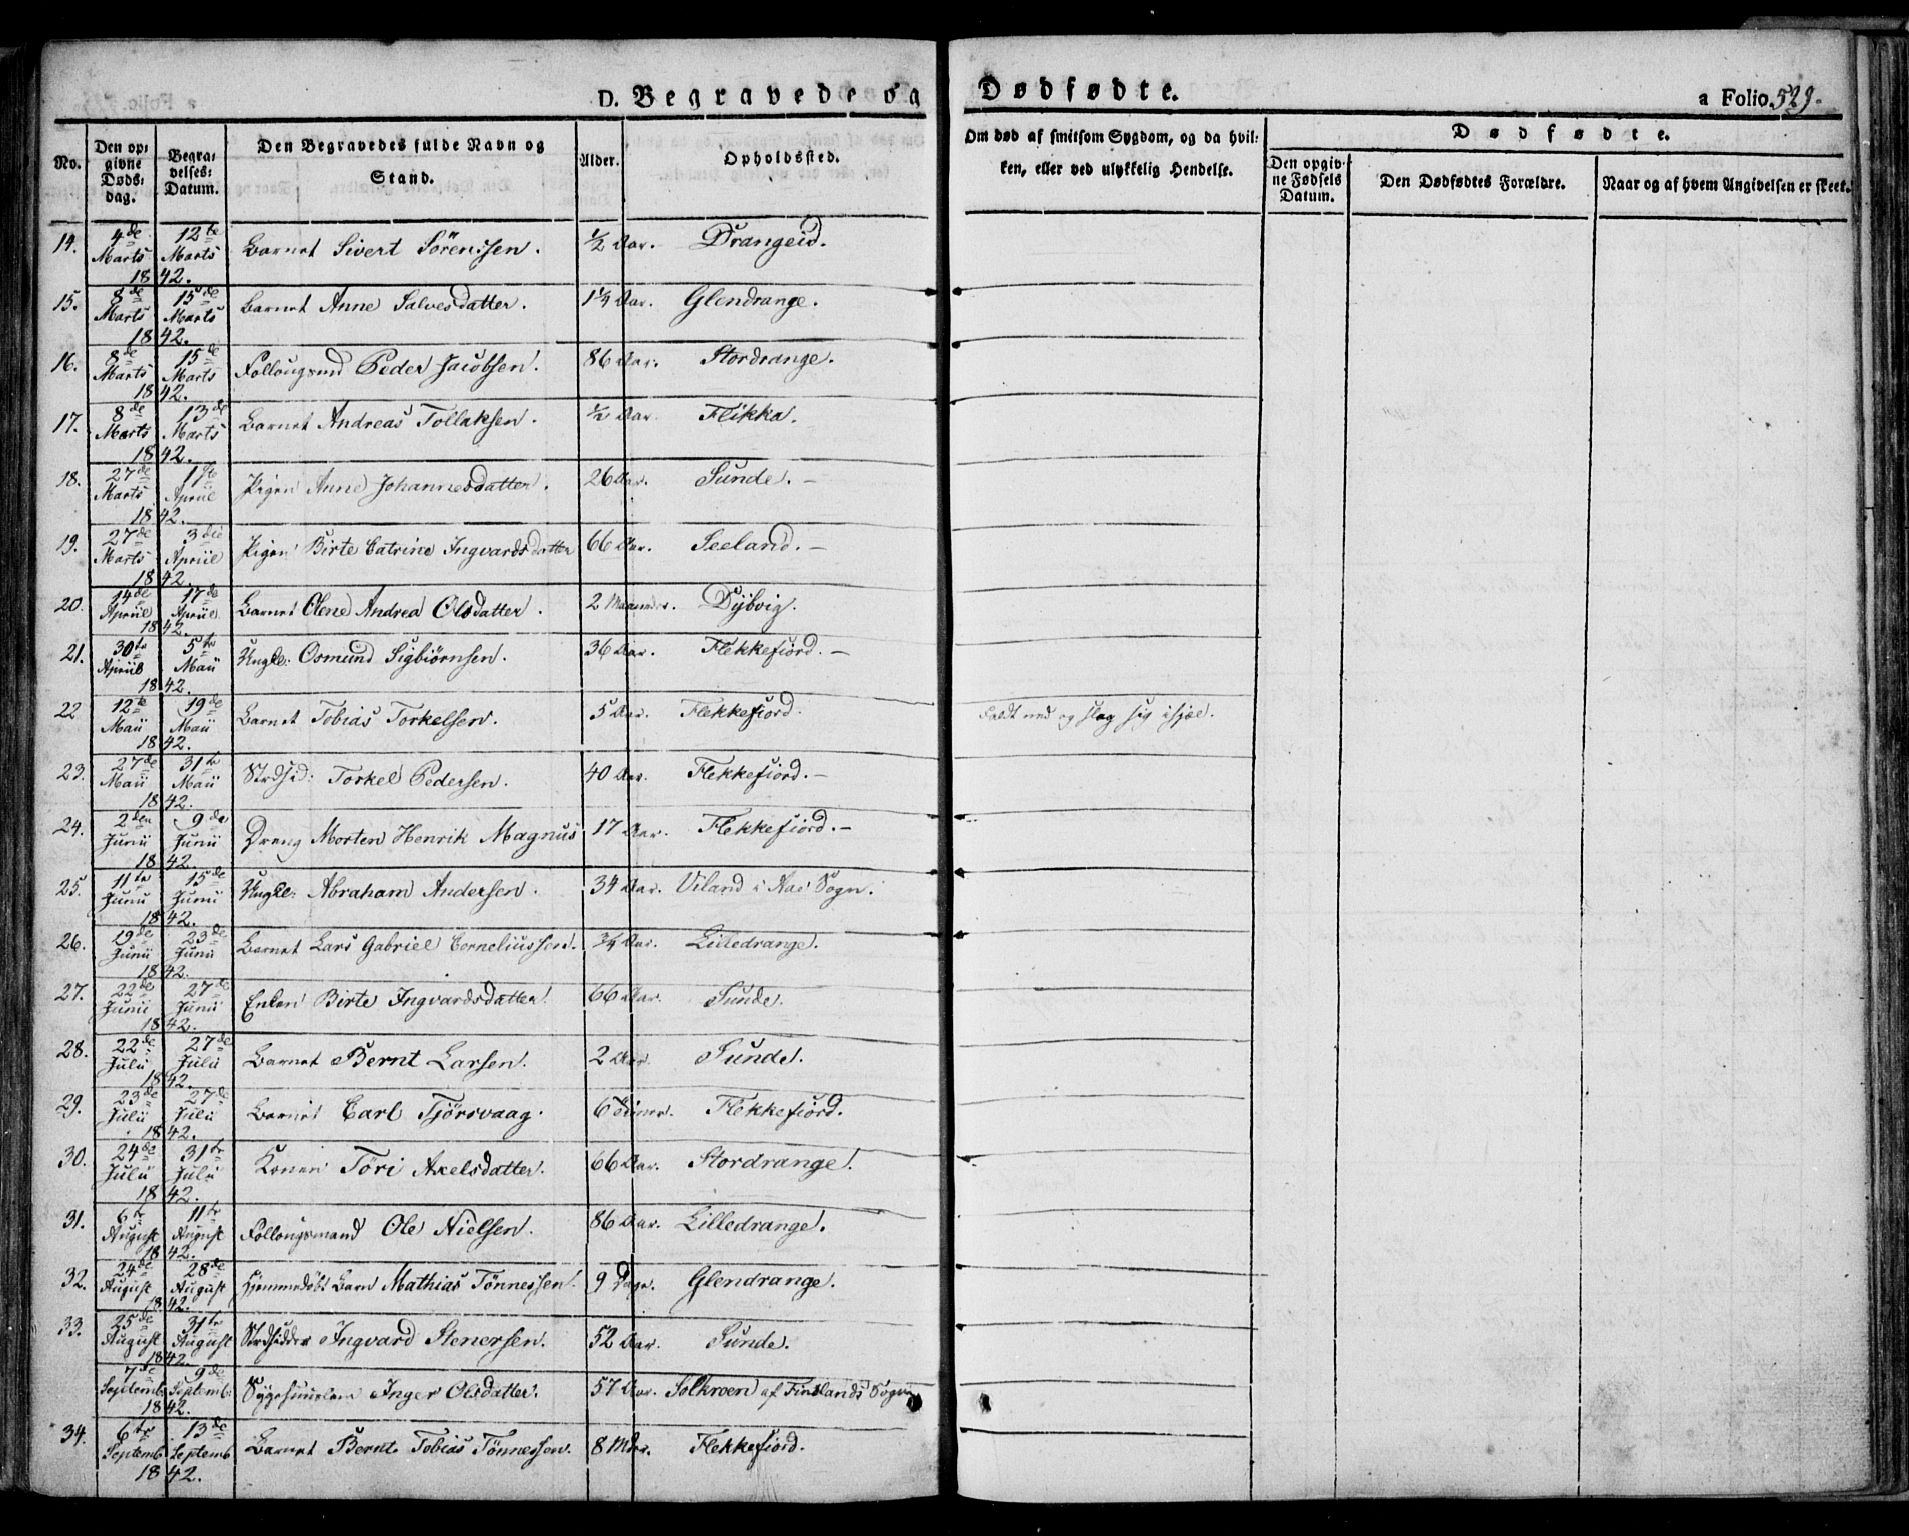 D. Begravede og Dødfødte. a Folio 529.
No. | Den opgivne Døds-dag. | Begravelses-Datum. | Den Begravedes fulde Navn og Stand. | Alder. | Opholdssted. | Om død af smitsom Sygdom, og da hvilken, eller ved ulykkelig Hendelse. | Dødfødte. | Den opgivne Fødsels Datum. | Den Dødfødtes Forældre. | Naar og af hvem Angivelsen er skeet.
14. 4de Marts 12te Marts 1842. Barnet Sivert Sörenssen. ½ Aar. Drangeid.
15. 8de Marts 15de Marts 1842. Barnet Anne Salvesdatter. 1¼ Aar. Glendrange.
16. 8de Marts 15de Marts 1842. Peder Jacobsen. 86 Aar. Stordrange.
17. 8de Marts 13de Marts 1842. Barnet Andreas Tollaksen. ½ Aar. Flikka.
18. 27de Marts 1ste Apriil 1842. Pigen Anne Johannesdatter. 26 Aar. Sunde. –
19. 27de Marts 3die Apriil 1842. Pigen Birte Catrine Ingvardsdatter 66 Aar. Seeland. –
20. 14de Apriil 17de Apriil 1842. Barnet Olene Andrea Olsdatter. 2 Maaneder. Dybvig.
21. 30te Apriil 5te Maii 1842. Ungkl: Osmund Sigbiørnsen. 36 Aar. Flekkefiord. –
22 12te Maii 19de Maii 1842. Barnet Tobias Torkelsen. 5 Aar. Flekkefiord. Faldt ned og slog sig ihjel.
23. 27de Maii 31te Maii 1842. Strdsid: Torkel Pedersen. 40 Aar. Flekkefiord. –
24. 2den Junii 9de Junii 1842. Dreng Morten Henrik Magnus 17 Aar. Flekkefiord. –
25. 11te Junii 15de Junii 1842. Ungkl: Abraham Andersen. 34 Aar. Viland i Aae Sogn.
26. 19de Junii 23de Junii 1842. Barnet Lars Gabriel Corneliussen. ¾ Aar. Lilledrange.
27. 22de Junii 27de Junii 1842. Enken Birte Ingvardsdatter. 66 Aar. Sunde.
28. 22de Julii 27de Julii 1842. Barnet Bernt Larsen. 2 Aar. Sunde.
29. 23de Julii 27de Julii 1842. Barnet Carl Tjörsvaag. 6 Timer. Flekkefiord.
30. 24de Julii 31te Julii 1842. Konen Töri Axelsdatter. 66 Aar. Stordrange.
31. 6te August 11te August 1842. Follougsmand Ole Nielsen. 86 Aar. Lilledrange.
32. 24de August 28de August 1842. Hjemmedøbt Barn Mathias Tönnessen. 9 Dage. Glendrange.
33. 25de August 31te August 1842. Strdsidder Ingvard Stenersen. 52 Aar. Sunde.
7de Septemb. 9de Septemb: 1842. Inger Olsdatter. 57 Aar. Solkroen af Findlands Sogn
34. 6te Septemb. 13de Septemb 1842. Barnet Bernt Tobias Tönnessen. 8 Mdr. Flekkefiord.